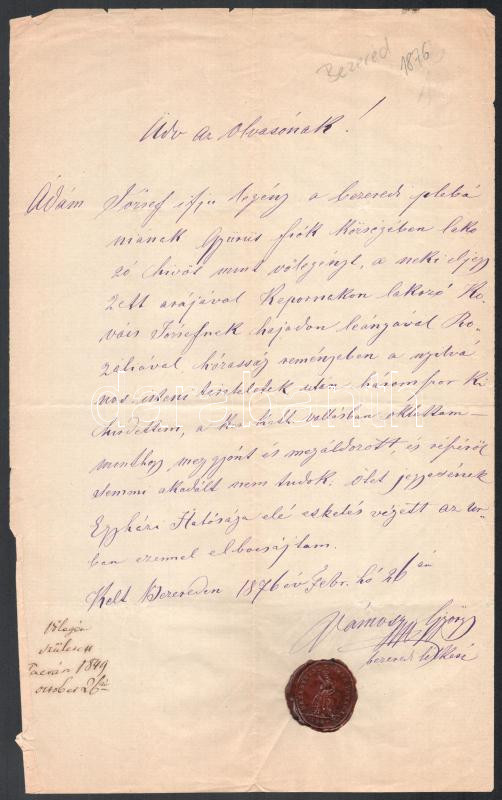 Bezered 1876
Üdv az Olvasónak!
Ádám József ifju legény a bezeredi plebá
niának Gyürüs fiók községében lako
zó hivőt mint vőlegényt, a neki eljegy
zett arájával Kepornakon lakozó Ko
váts Józsefnek hajadon leányával Ro
záliával, házasság reményében a nyilvá
nos isteni tiszteletek után háromszor ki
hirdettem, a ker. hitt vallásban oktattam
minthogy meggyónt és megáldozott, és részéről
semmi akadályt nem tudok. Őtet jegyesének
Egyházi Hatósága elé esketés végett az Ur
ban ezennel elbocsájtom.
Kelt Bezereden 1876 év Febr. hó 26 án
Vámosy György
bezeredi lelkész
Vőlegén
született
1849
october 26án
darabanth.com